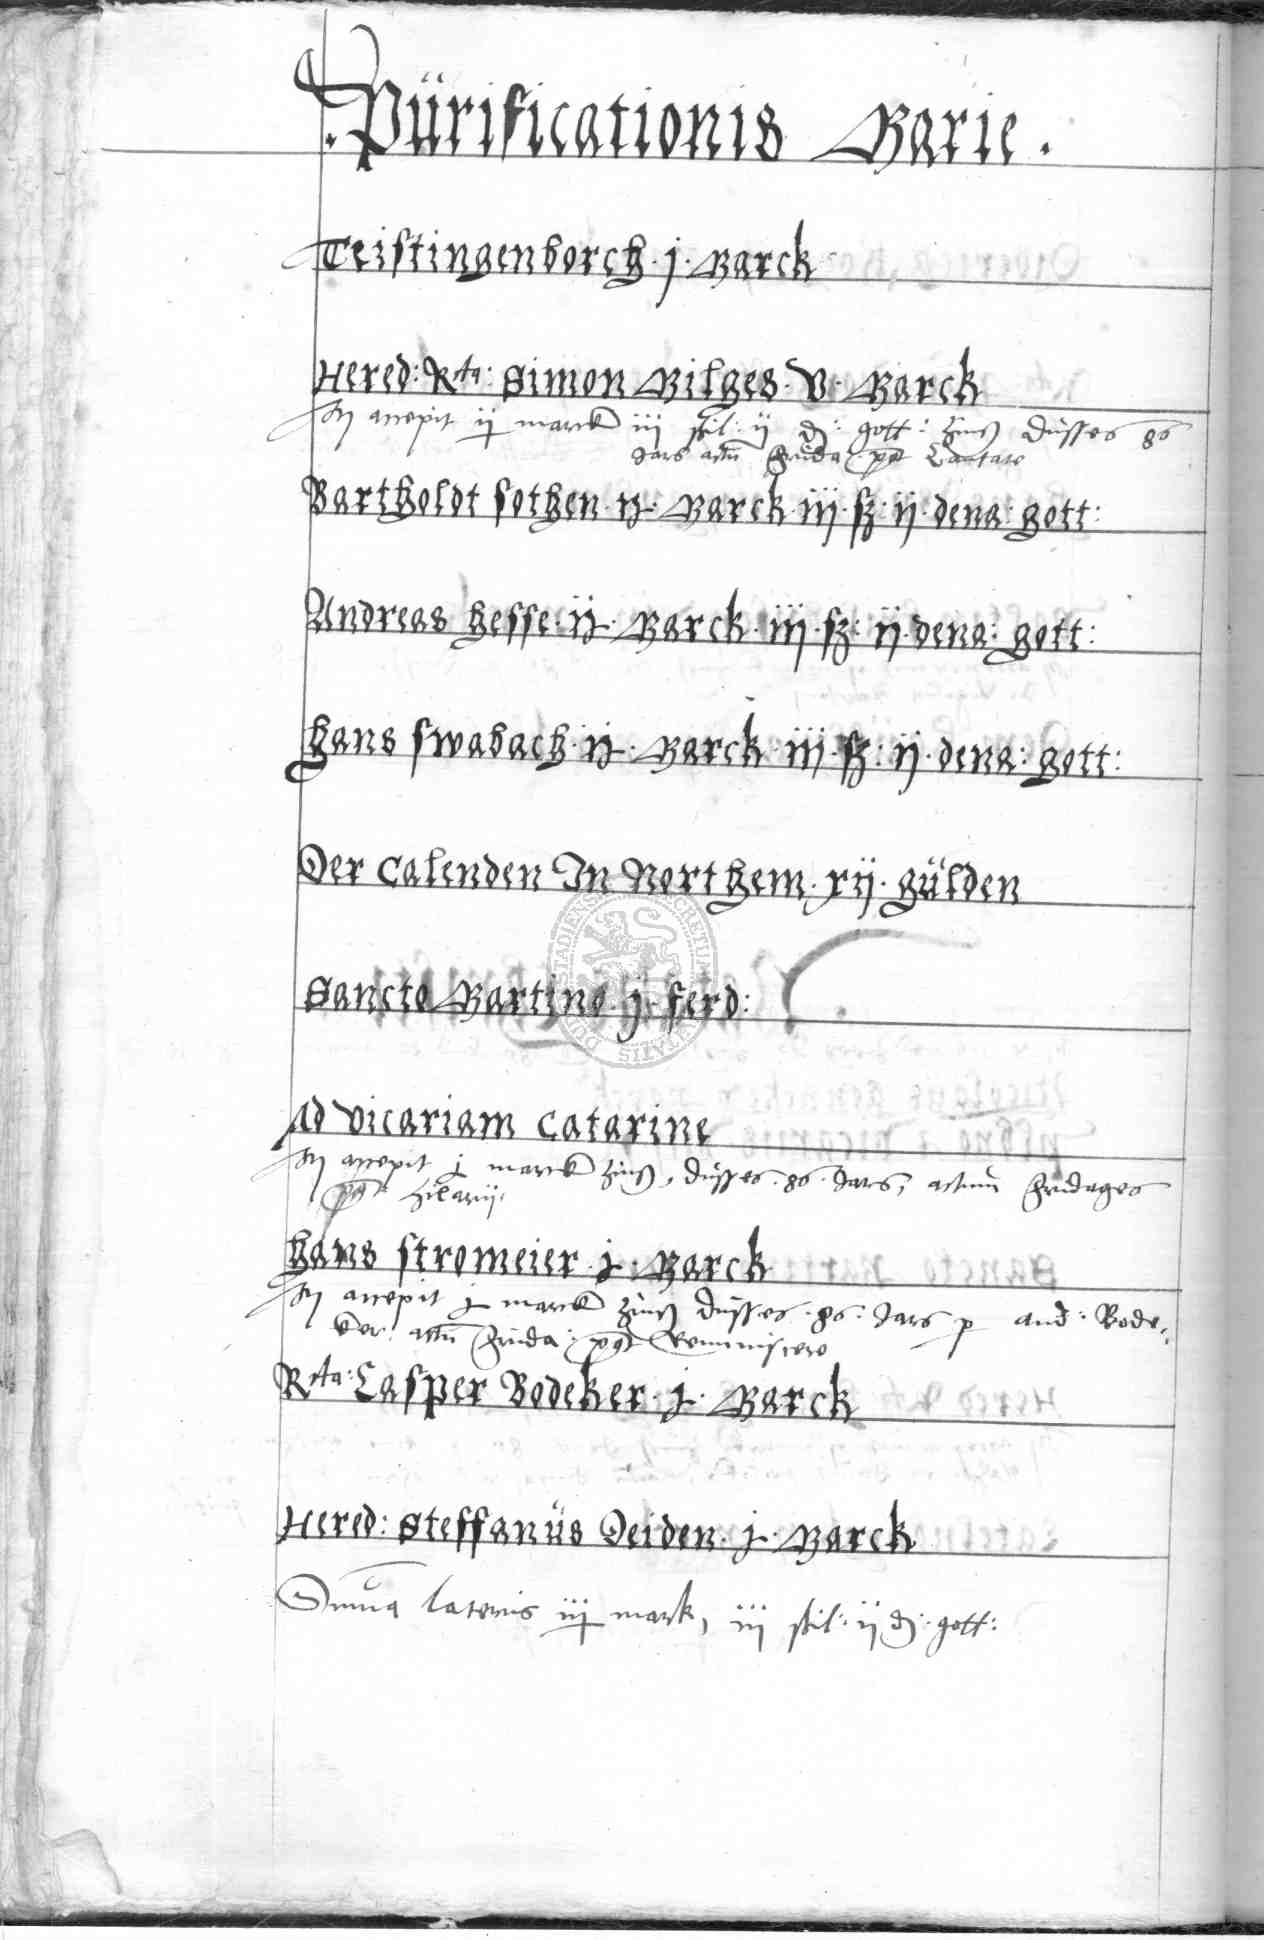 Pürificationis Marie.
Teistingenborch · j · Marck
Hered: Rta: Simon Milges · v · Marck
accepit ij marck iij sl: ij d: gott: zinß düsses 86
Jars actü frida: post Cantate
Bartholdt Sothen · ij · Marck · iij · sz · ij · dena: gott:
Andreas Hesse · ij · Marck · iij · sz: ij · dena: gott:
Hans Swabach · ij · Marck · iij · sz: ij · dena: gott:
Der Calenden In Northem · xij · gülden
Sancto Martino · j · ferd:
Ad vicariam Catarine
accepit j marck zinß, düsses · 86 · Jars, actum fridages
post Hilarij
Hans Stromeier · j · Marck
accepit j marck zinß düsses · 86: Jars p and: Bode-
ker actü frida: post Reminiscere
Rta: Casper Bodeker · j · Marck
Hered: Steffanüs Deiden · j · Marck
Suma lateris iij mark, iij sl: ij d: gott: